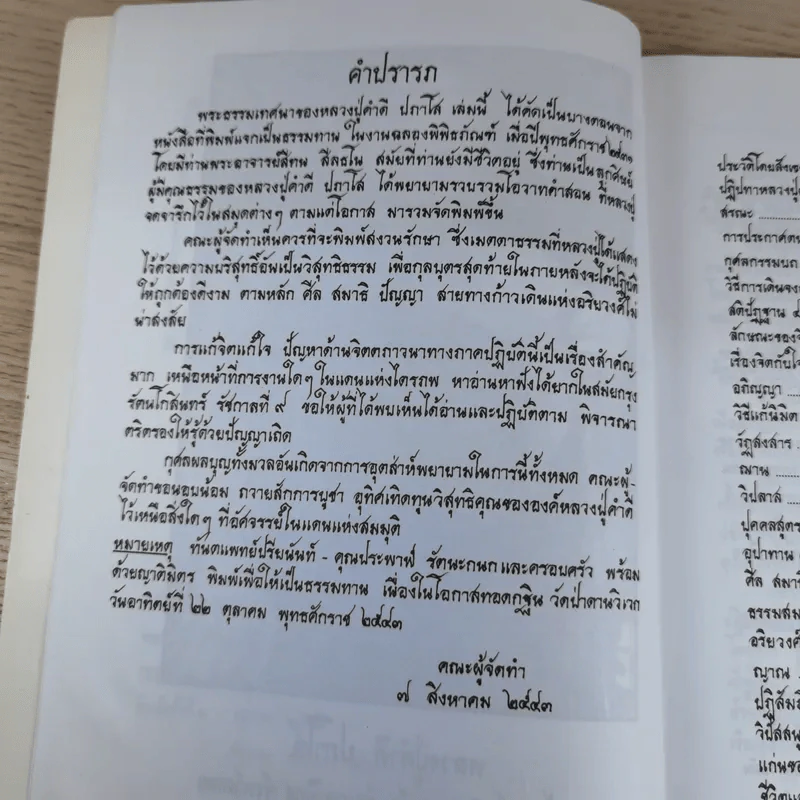 คำปรารภ
พระธรรมเทศนาของหลวงปู่คำดี ปภาโส เล่มนี้ ได้คัดเป็นบางตอนจาก
หนังสือที่พิมพ์แจกเป็นธรรมทาน ในงานฉลองพิพิธภัณฑ์ เมื่อปีพุทธศักราช ๒๕๓๑
โดยมีท่านพระอาจารย์สีทน สีลธโน สมัยที่ท่านยังมีชีวิตอยู่ ซึ่งท่านเป็นลูกศิษย์
ผู้มีคุณธรรมของหลวงปู่คำดี ปภาโส ได้พยายามรวบรวมโอวาทคำสอน ที่หลวงปู่
จดจำรึกไว้ในสมุดต่างๆ ตามแต่โอกาส มารวมจัดพิมพ์ขึ้น
คณะผู้จัดทำเห็นควรที่จะพิมพ์สงวนรักษา ซึ่งเมตตาธรรมที่หลวงปู่ได้แสดง
ไว้ด้วยความบริสุทธิ์อันเป็นวิสุทธิธรรม เพื่อกุลบุตรสุดท้ายในภายหลังจะได้ปฏิบัติ
ให้ถูกต้องดีงาม ตามหลัก ศีล สมาธิ ปัญญา สายทางก้าวเดินแห่งอริยวงศ์ไม่
น่าสงสัย
การแก้จิตแก้ใจ ปัญหาด้านจิตตภาวนาทางภาคปฏิบัตินี้เป็นเรื่องสำคัญ
มาก เหนือหน้าที่การงานใดๆ ในแดนแห่งไตรภพ หาอ่านหาฟังได้ยากในสมัยกรุง
รัตนโกสินทร์ รัชกาลที่ ๙ ขอให้ผู้ที่ได้พบเห็นได้อ่านและปฏิบัติตาม พิจารณา
ตริตรองให้รู้ด้วยปัญญาเถิด
กุศลผลบุญทั้งมวลอันเกิดจากการอุตส่าห์พยายามในการนี้ทั้งหมด คณะผู้-
จัดทำขอนอบน้อม ถวายสักการบูชา อุทิศเทิดทูนวิสุทธิคุณขององค์หลวงปู่คำดี
ไว้เหนือสิ่งใดๆ ที่อัศจรรย์ในแดนแห่งสมมุติ
หมายเหตุ ทันตแพทย์ปรียนันท์ - คุณประพาฬ รัตนะกนก และครอบครัว พร้อม
ด้วยญาติมิตร พิมพ์เพื่อให้เป็นธรรมทาน เนื่องในโอกาสทอดกฐิน วัดป่าดานวิเวก
วันอาทิตย์ที่ ๒๒ ตุลาคม พุทธศักราช ๒๕๔๓
คณะผู้จัดทำ
๗ สิงหาคม ๒๕๔๓
ประวัติโดยสังเข
ปฏิปทาหลวงปู่
สรณะ
การประกาศตน
กุศลกรรมบถ
วิธีการเดินจง
สติปัฏฐาน ๔
ลักษณะของจิ
เรื่องจิตกับใจ
อภิญญา
วิธีแก้นิมิต
วัฏสงสาร
ฌาน
วิปลาส
ปุคคลสูตร
อุปาทาน
ศีล สมาธิ
ธรรมสม
อริยวงศ์
ญาณ
ปฏิสัมภิ
วิปัสสนู
แก่นขอ
ชีวิตแ